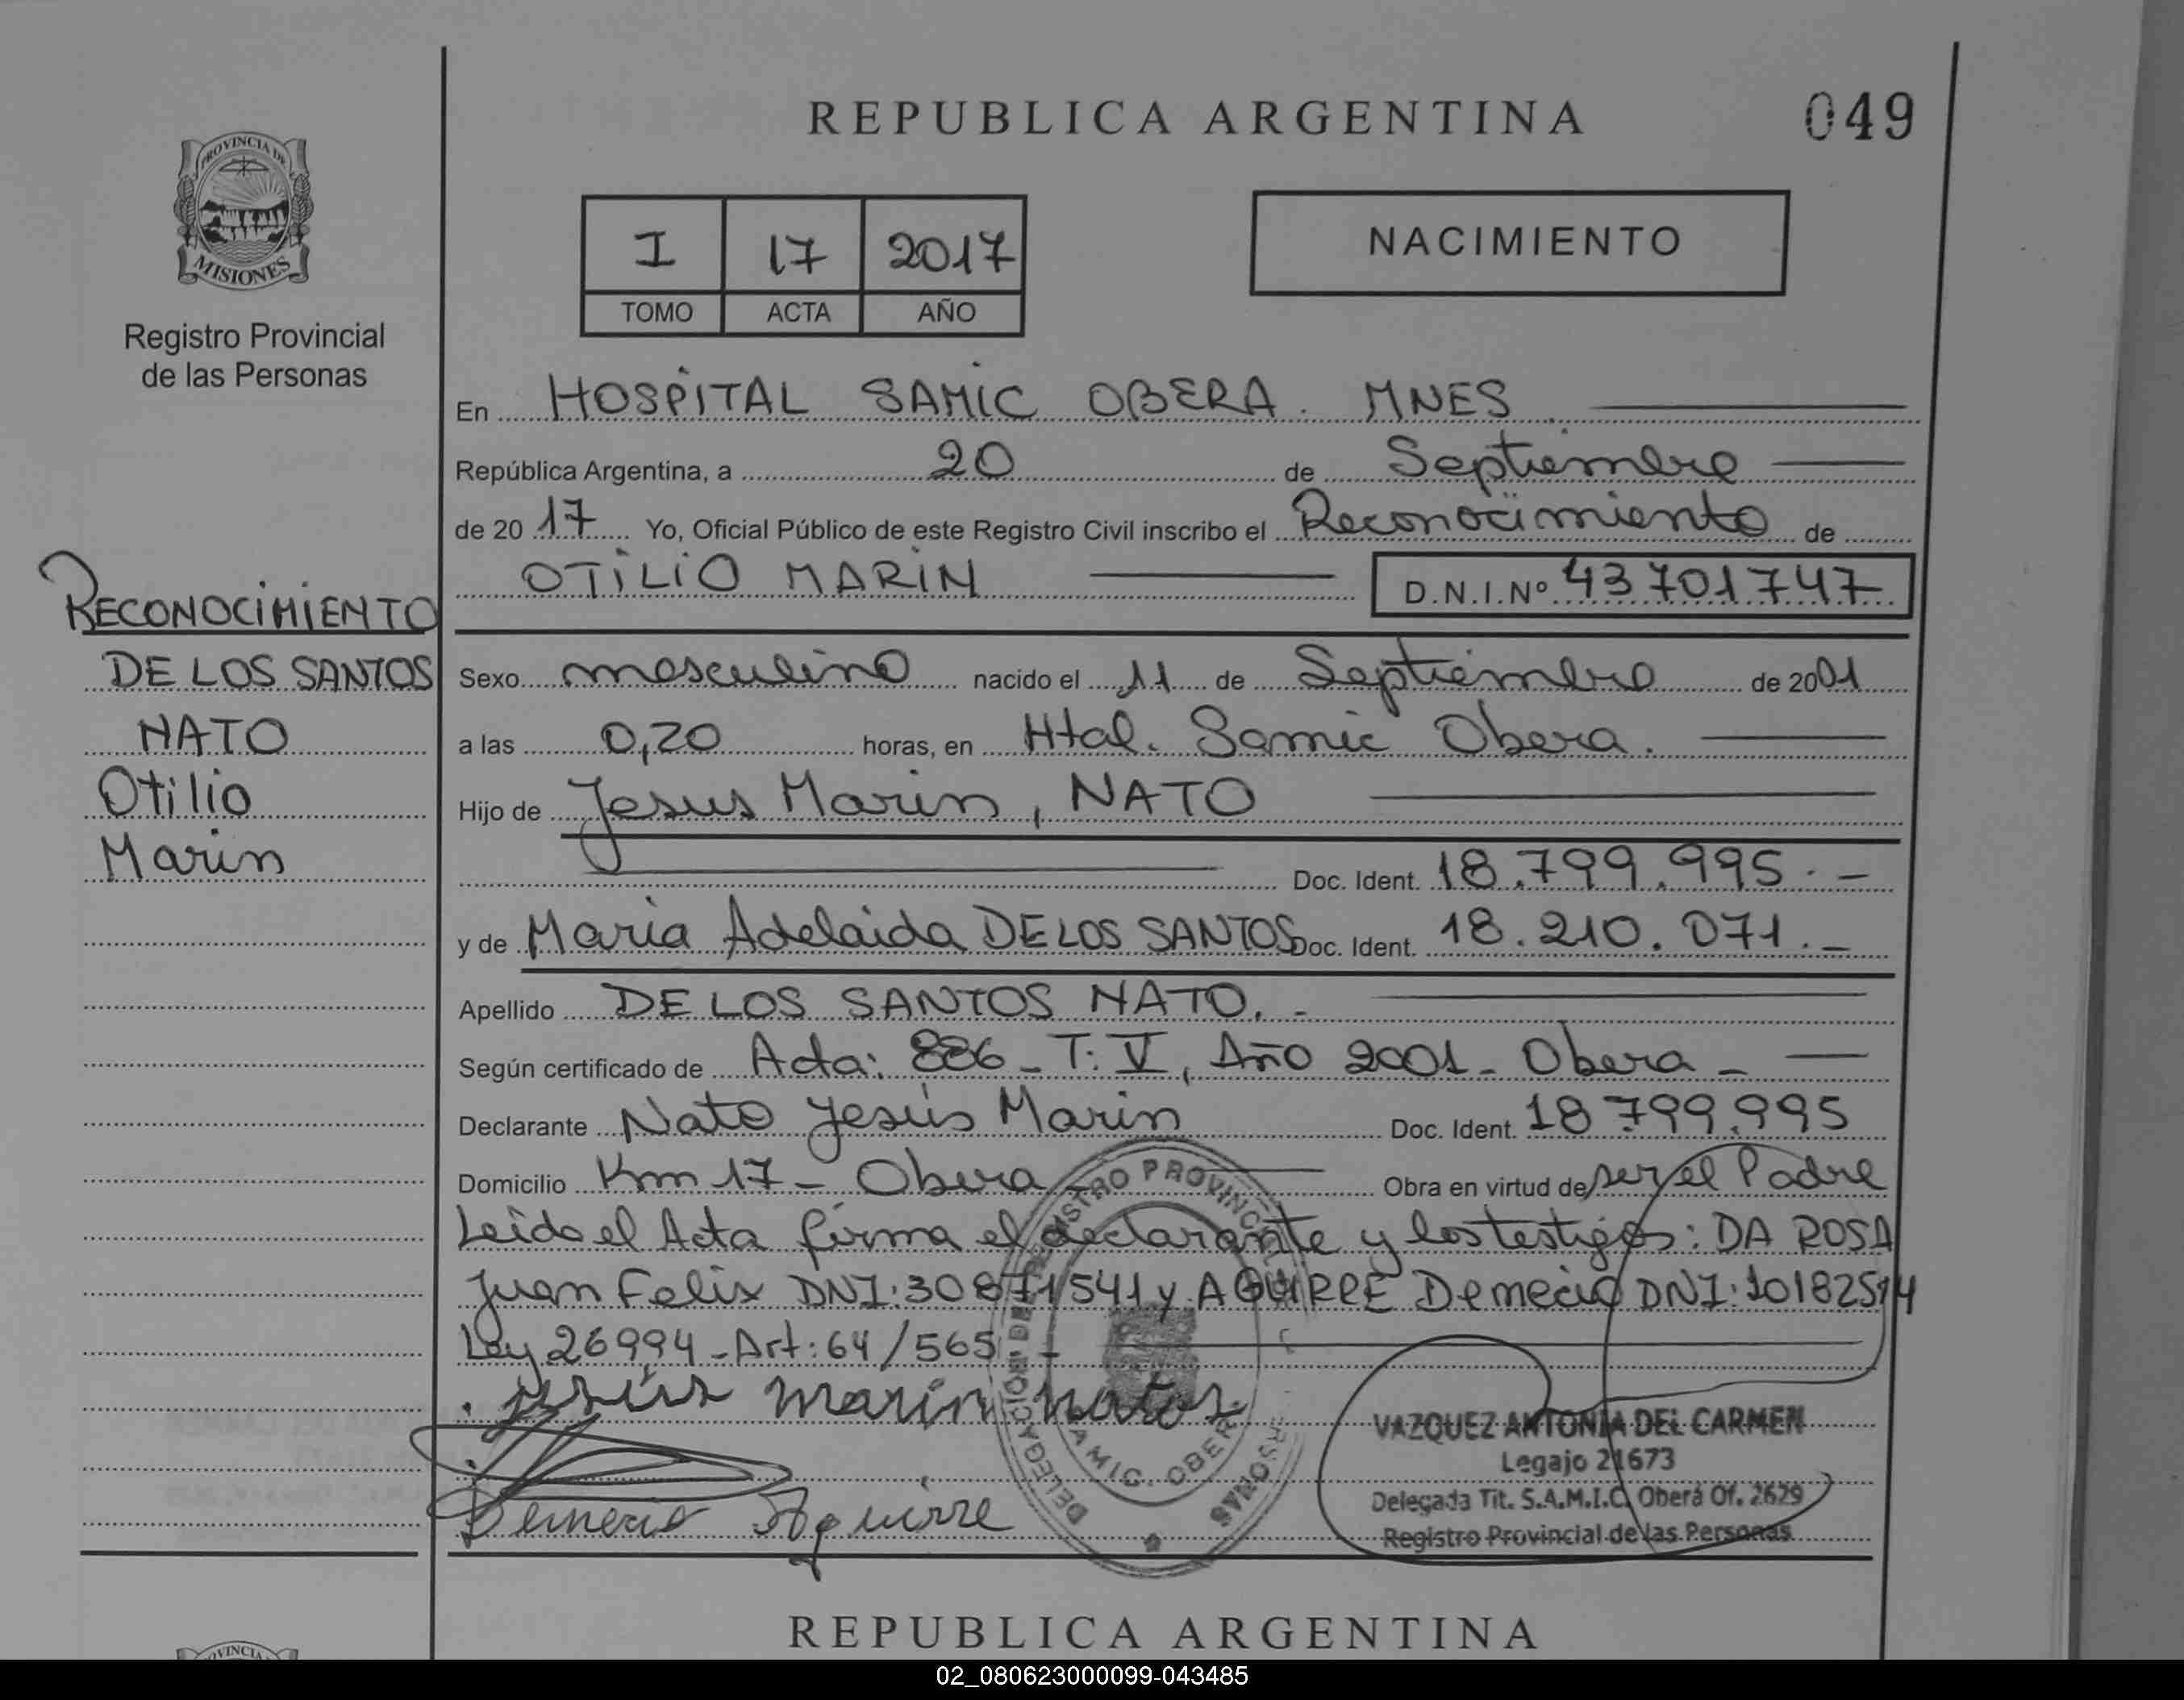 REPUBLICA ARGENTINA
049
PROVINCIA DE
MISIONES
Registro Provincial
de las Personas
I 17 2017
TOMO ACTA AÑO
NACIMIENTO
En HOSPITAL SAMIC OBERA. MNES
República Argentina, a 20 de Septiembre
de 20 17 Yo, Oficial Público de este Registro Civil inscribo el Reconocimiento de
OTILIO MARIN D.N.I.Nº 43701747
RECONOCIMIENTO
DE LOS SANTOS
NATO
Otilio
Marin
Sexo masculino nacido el 11 de Septiembre de 2001
a las 0,20 horas, en Htal. Samic Obera.
Hijo de Jesus Marin, NATO
Doc. Ident. 18.799.995.-
y de Maria Adelaida DE LOS SANTOS Doc. Ident. 18.210.071.-
Apellido DE LOS SANTOS NATO.-
Según certificado de Acta: 886 - T: V, Año 2001 - Obera -
Declarante Nato Jesús Marin Doc. Ident. 18.799.995
Domicilio Km 17 - Obera Obra en virtud de ser el Padre
Leido el Acta firma el declarante y los testigos: DA ROSA
Juan Felix DNI: 30871541 y AGUIRRE Demecio DNI: 10182514
Ley 26994 - Art: 64/565 -
jesús marín natos
Demecio Aguirre
VAZQUEZ ANTONIA DEL CARMEN
Legajo 21673
Delegada Tit. S.A.M.I.C. Oberá Of. 2629
Registro Provincial de las Personas
REPUBLICA ARGENTINA
02_080623000099-043485